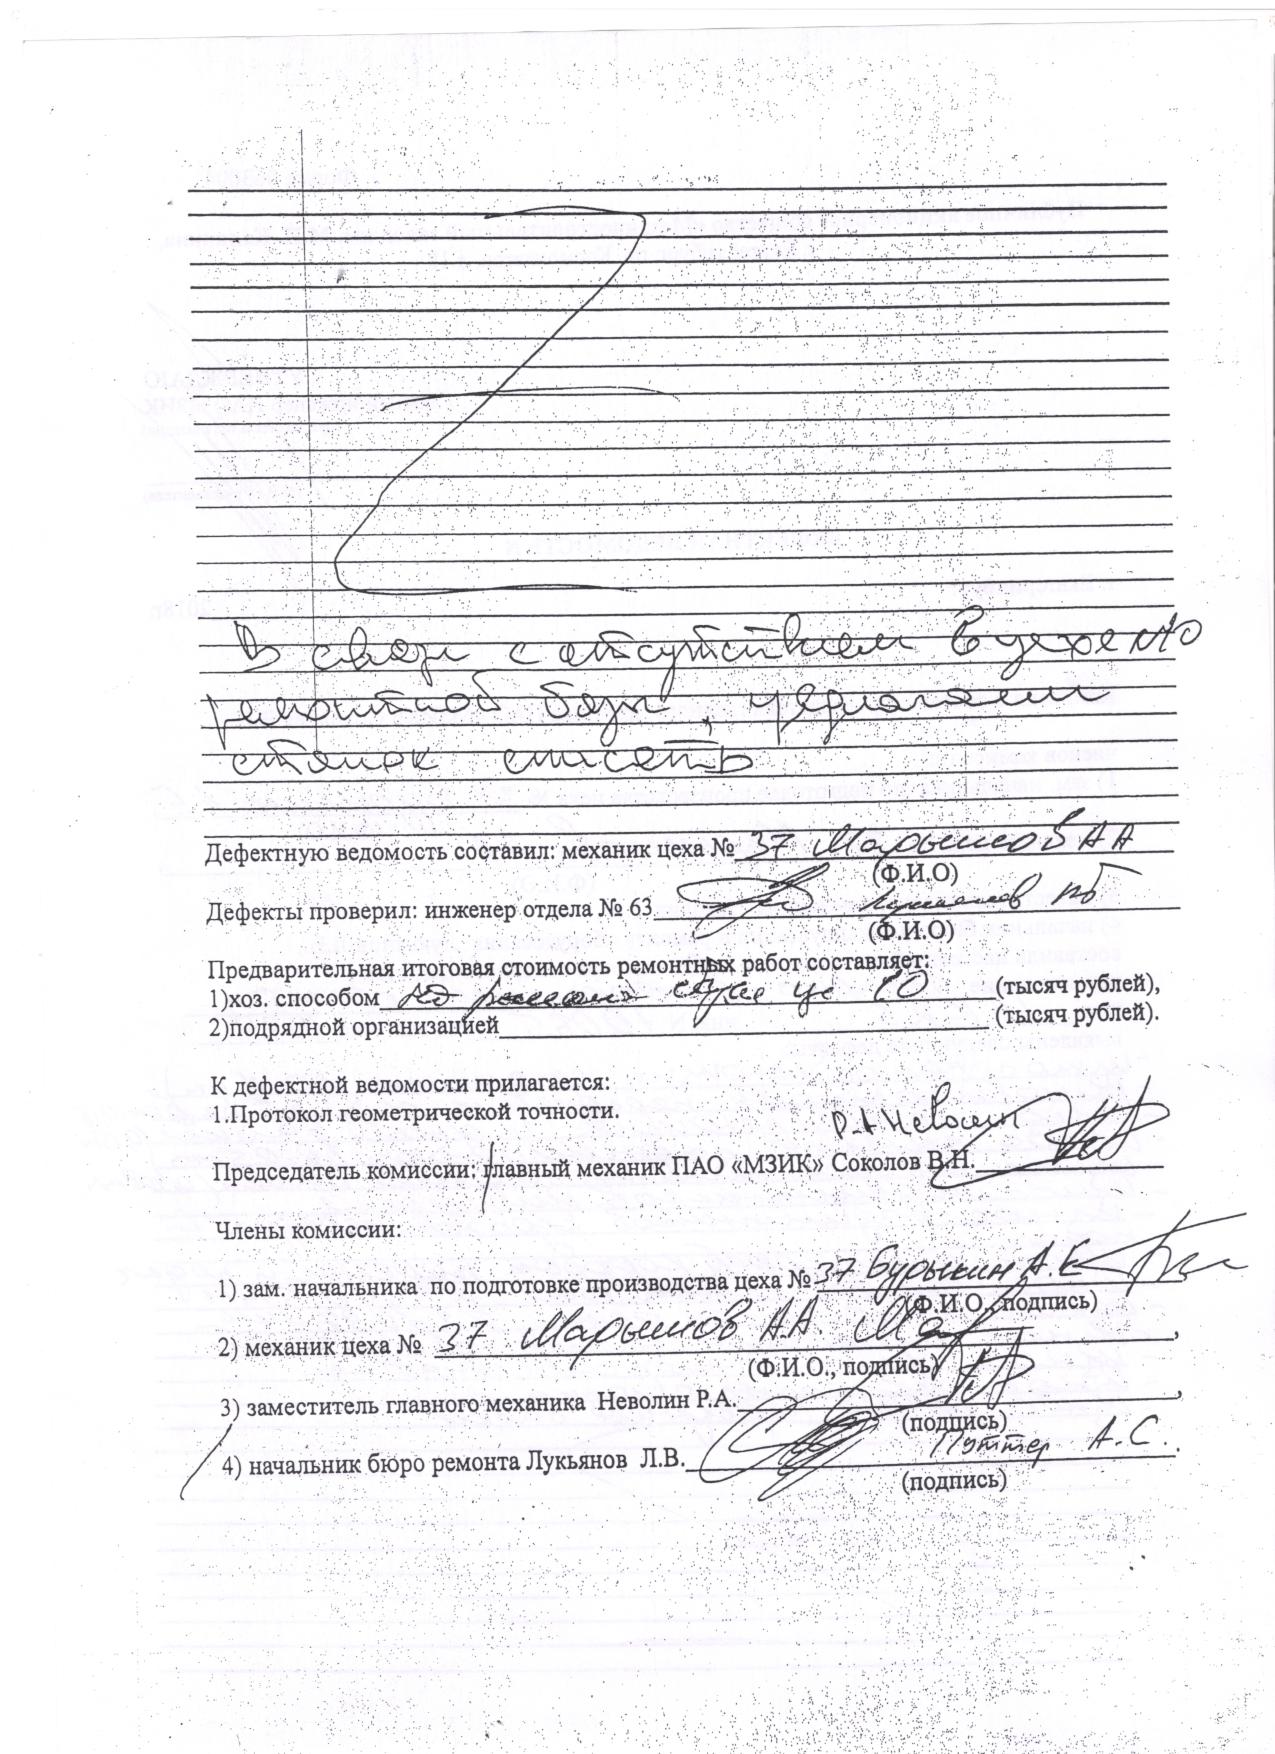 В связи с отсутствием в цехе №40
ремонтной базы, предлагаем
станок списать
Дефектную ведомость составил: механик цеха № 37 Марышов А А
(Ф.И.О)
Дефекты проверил: инженер отдела № 63
(Ф.И.О)
Предварительная итоговая стоимость ремонтных работ составляет:
1)хоз. способом (тысяч рублей),
2)подрядной организацией (тысяч рублей).
К дефектной ведомости прилагается:
1.Протокол геометрической точности.
Р.А Неволин
Председатель комиссии: главный механик ПАО «МЗИК» Соколов В.Н.
Члены комиссии:
1) зам. начальника по подготовке производства цеха № 37 Бурыкин А.Е
(Ф.И.О., подпись)
2) механик цеха № 37 Марышов А.А. ,
(Ф.И.О., подпись)
3) заместитель главного механика Неволин Р.А. ,
(подпись)
Путтер А.С.
4) начальник бюро ремонта Лукьянов Л.В. .
(подпись)